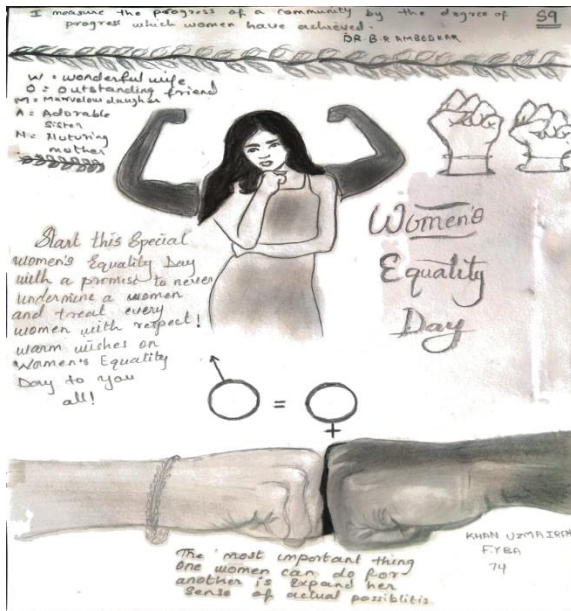 I measure the progress of a community by the degree of
progress which women have achieved.
DR B.R AMBEDKAR
59
W = wonderful wife
O = outstanding friend
M = Marvelous daughter
A = Adorable
Sister
N = Nuturing
mother
Women's
Equality
Day
Start this Special
women's Equality Day
with a promist to never
undermine a women
and treat every
women with respect!
warm wishes on
Women's Equality
Day to you
all!
=
The most important thing
One women can do for
another is Expand her
Sense of actual possiblitis
KHAN UZMA IRAM
F.Y.BA
74